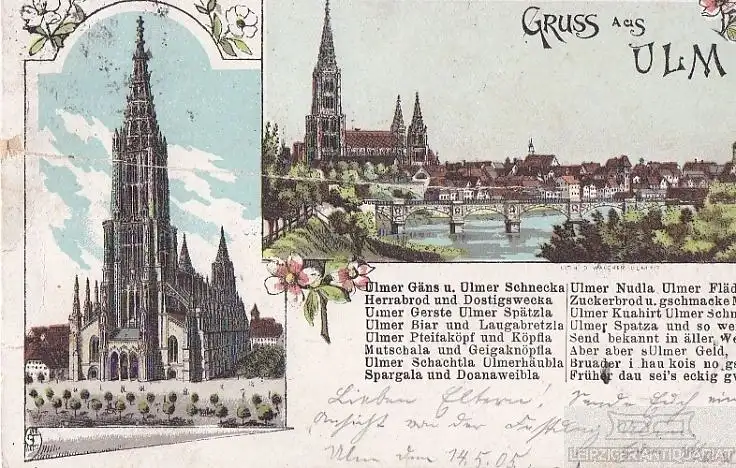 GRUSS AUS
ULM
Ulmer Gäns u. Ulmer Schnecka
Herrabrod und Dostigswecka
Ulmer Gerste Ulmer Spätzla
Ulmer Biar und Laugabretzla
Ulmer Pfeifaköpf und Köpfla
Mutschala und Geigaknöpfla
Ulmer Schachtla Ulmerhäubla
Spargala und Doanaweibla
Ulmer Nudla Ulmer Fläd
Zuckerbrod u. gschmacke M
Ulmer Kuahirt Ulmer Schn
Ulmer Spatza und so we
Send bekannt in äller We
Aber aber sUlmer Geld,
Bruader i hau kois no gs
Früher dau sei's eckig gw
Lieben Eltern! Sende Euch ein
Ansicht von der Festung
Ulm dem 14.5.05.
LEIPZIGER ANTIQUARIAT